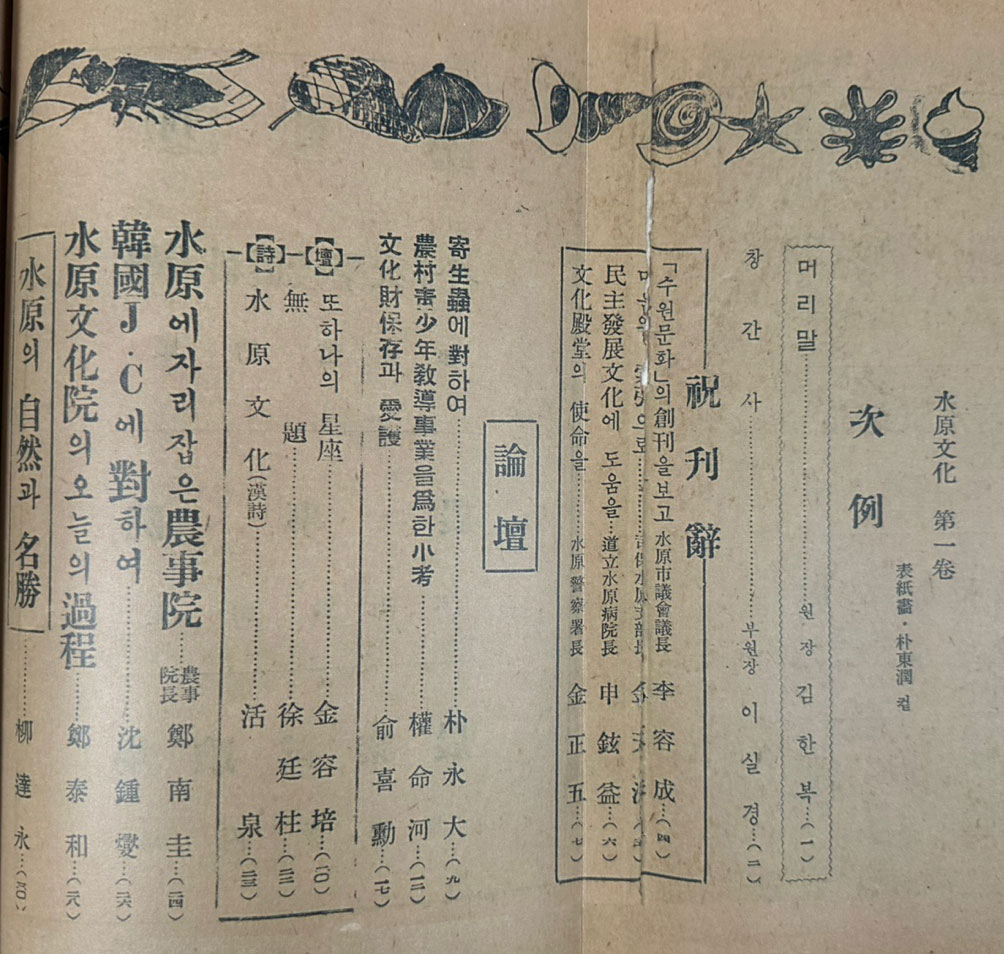 水原文化 第一卷
表紙畵·朴東潤 컽
次例
머리말……원장 김한복…(一)
창간사……부원장 이실경…(二)
祝刊辭
「수원문화」의創刊을보고 水原市議會議長 李容成…(四)
水原支部長
民主發展文化에 도움을…道立水原病院長 申鉉益…(六)
文化殿堂의 使命을……水原警察署長 金正五…(七)
論壇
寄生蟲에對하여……朴永大…(九)
農村靑少年敎導事業을爲한小考……權命河…(一二)
文化財保存과 愛護……俞喜勳…(一七)
【詩】【壇】
또하나의 星座……金容培…(二〇)
無題……徐廷柱…(二二)
水原文化(漢詩)……活泉…(二三)
水原에자리잡은農事院……農事院長 鄭南圭…(二四)
韓國J·C에對하여……沈鍾燮…(二六)
水原文化院의오늘의過程……鄭泰和…(二八)
水原의 自然과 名勝……柳達永…(四〇)